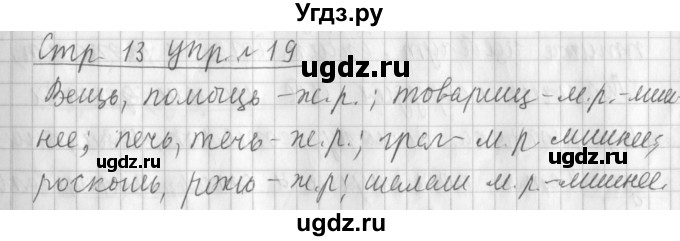 Угдз.ру
Стр 13 упр. № 19
ugdz.ru
Вещь, помощь – ж.р.; товарищ – м.р. – лиш-
нее; печь, течь – ж.р.; грач – м.р лишнее;
ugdz.ru ugdz.ru
роскошь, рожь – ж.р; шалаш м.р. – лишнее.
ugdz.ru